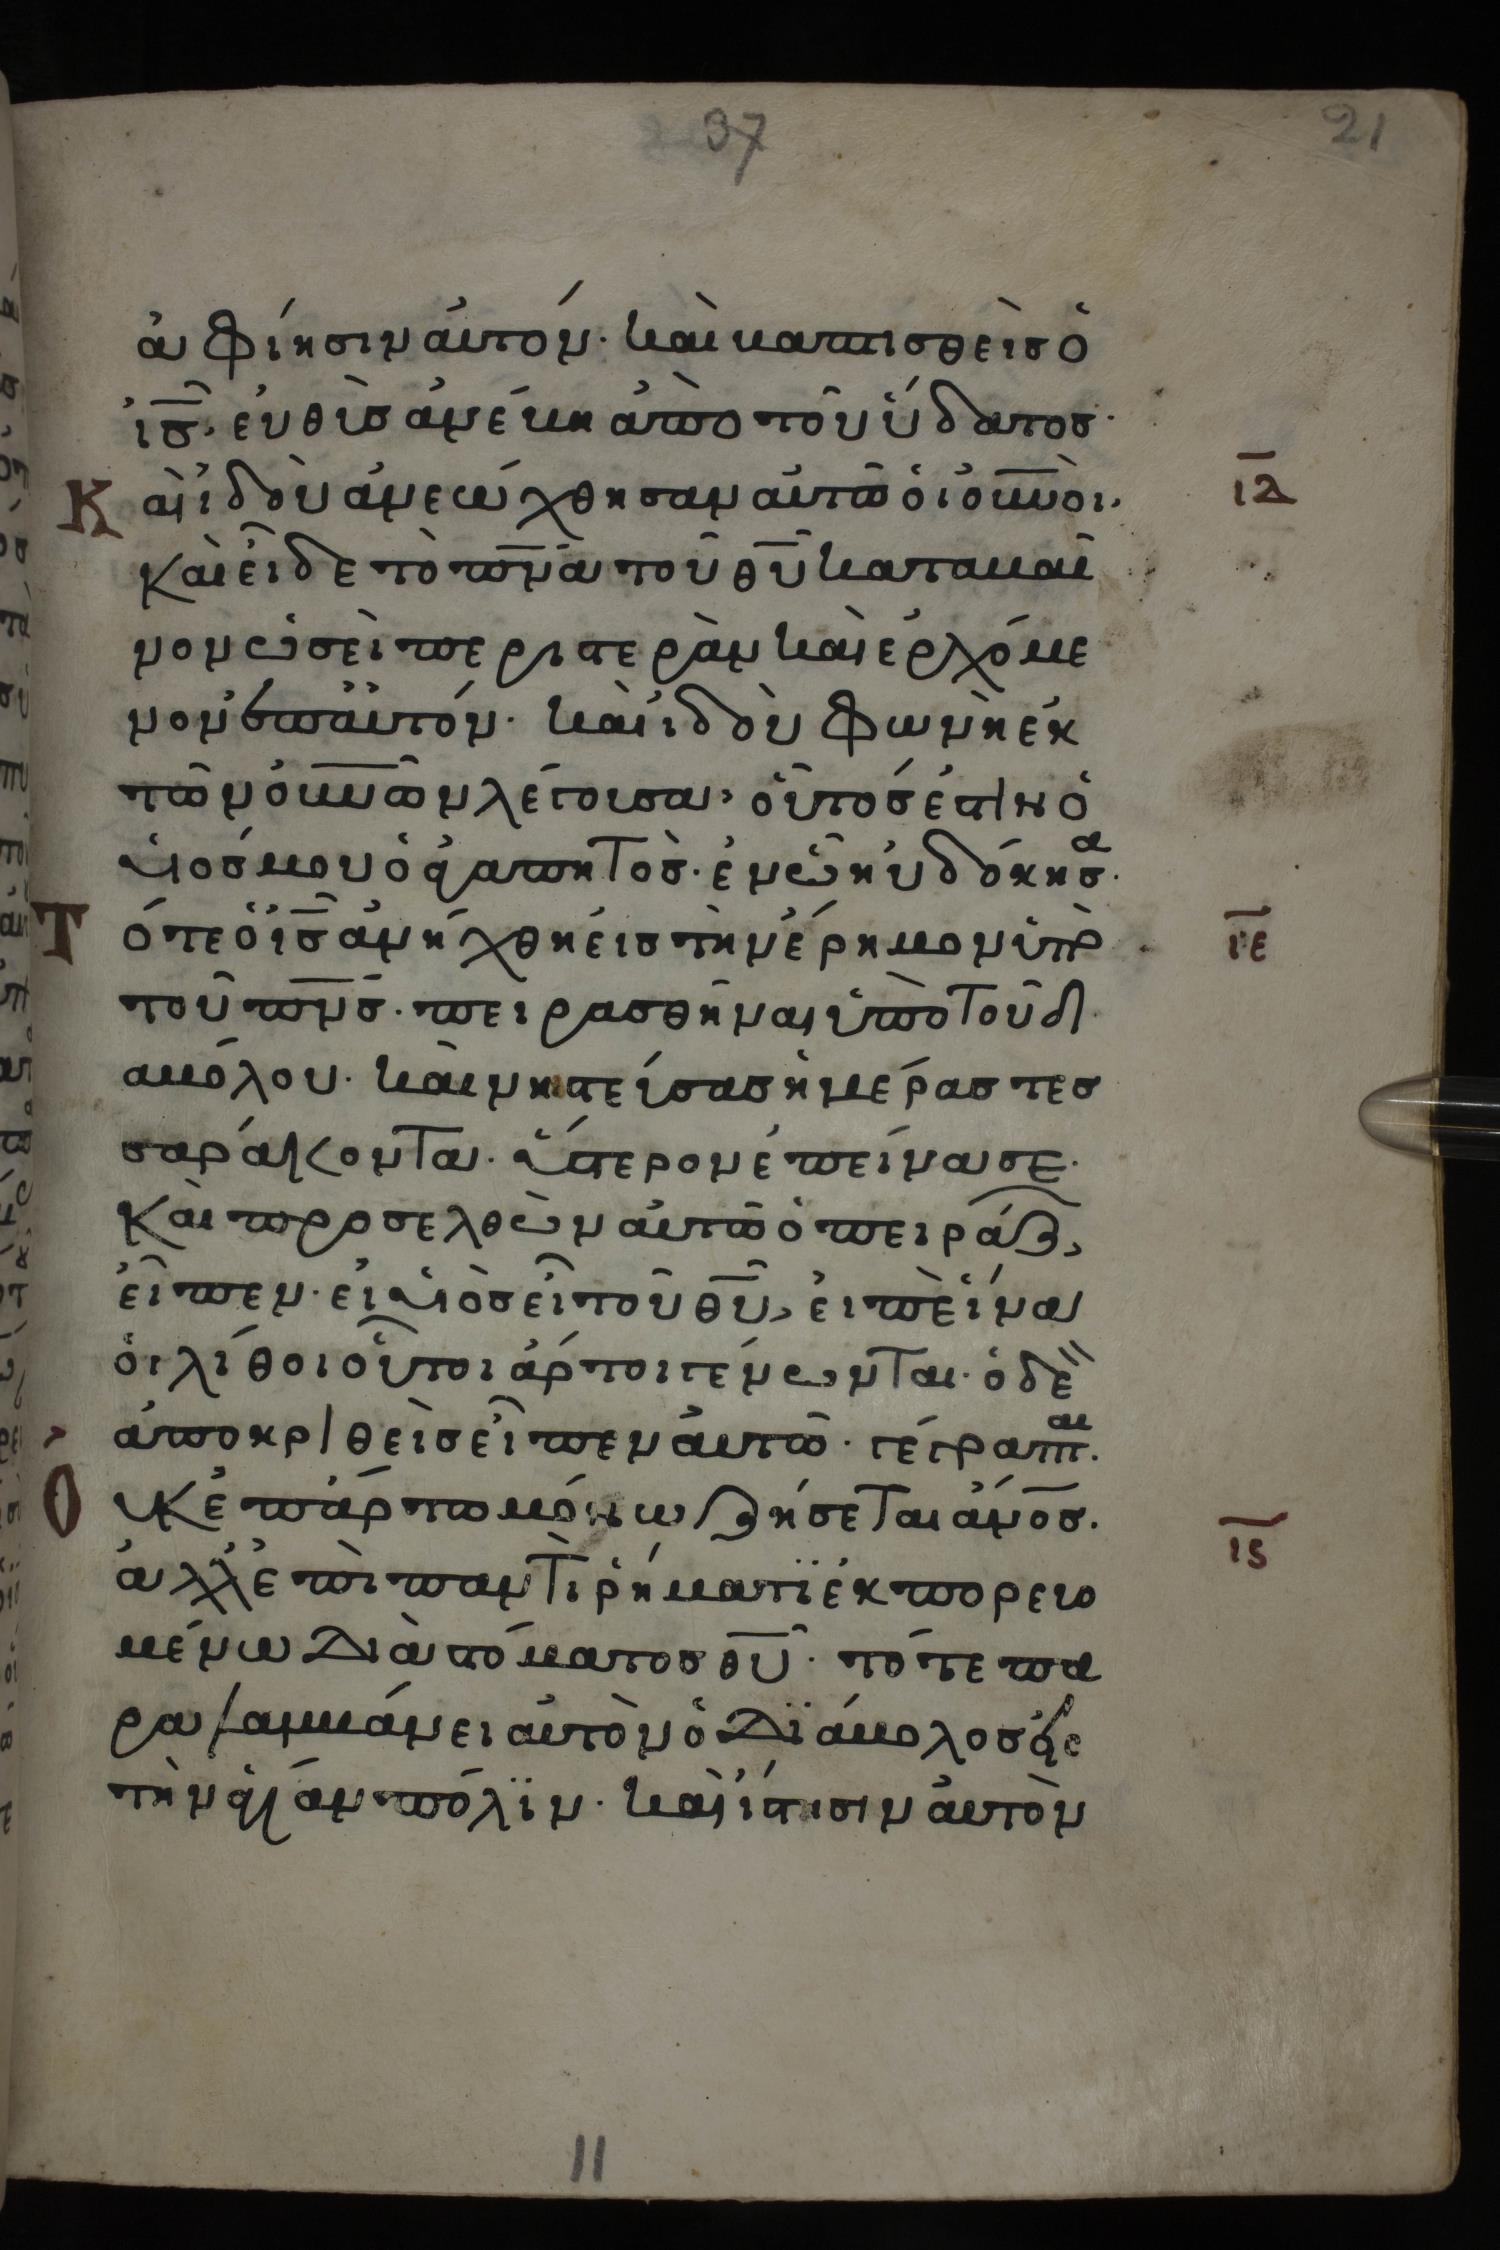 37
21
ἀφίησιν αὐτόν· καὶ βαπτισθεὶς ὁ
ἰ̅ς̅, εὐθὺς ἀνέβη ἀπὸ τοῦ ὕδατος·
Καὶ ἰδοὺ ἀνεώχθησαν αὐτῶ ὁι ὀυ̅ν̅ὸι,
ι̅δ̅
καὶ εἶδε τὸ π̅ν̅ᾶ τοῦ θ̅υ̅ καταβαῖ
νον ὡσεὶ περιστερὰν καὶ ἐρχόμε
νον ἐπ' αὐτόν· καὶ ἰδοὺ φωνὴ ἐκ
τῶν ὀυ̅ν̅ῶν λέγουσα, οὗτός ἐστιν ὁ
υἱός μου ὁ ἀγαπητὸς· ἐν ὧ ηὐδόκησα·
Τότε ὁ ἰ̅ς̅ ἀνήχθη εἰς τὴν ἔρημον ὑπὸ
ι̅ε̅
τοῦ π̅ν̅ς̅· πειρασθῆναι ὑπὸ τοῦ δι
αβόλου· καὶ νηστεύσας ἡμέρας τεσ
σαράκοντα· ὕστερον ἐπείνασε·
Καὶ προσελθὼν αὐτῶ ὁ πειράζων,
εἶπεν· εἰ υἱὸς εἶ τοῦ θ̅υ̅, εἰπὲ ἵνα
ὁι λίθοι οὗτοι ἄρτοι γένωνται· ὁ δὲ
ἀποκριθεὶς εἶπεν αὐτῶ· γέγραπται·
Οὐκ ἐπ' ἄρτω μόνω ζήσεται ἄν̅ο̅ς̅·
ι̅ς̅
ἀλλ' ἐπὶ παντὶ ῥήματϊ ἐκπορευο
μένω διὰ στόματος θ̅υ̅· τότε πα
ραλαμβάνει αὐτὸν ὁ διάβολος εἰς
τὴν ἁγίαν πόλϊν· καὶ ἵστησιν αὐτὸν
11